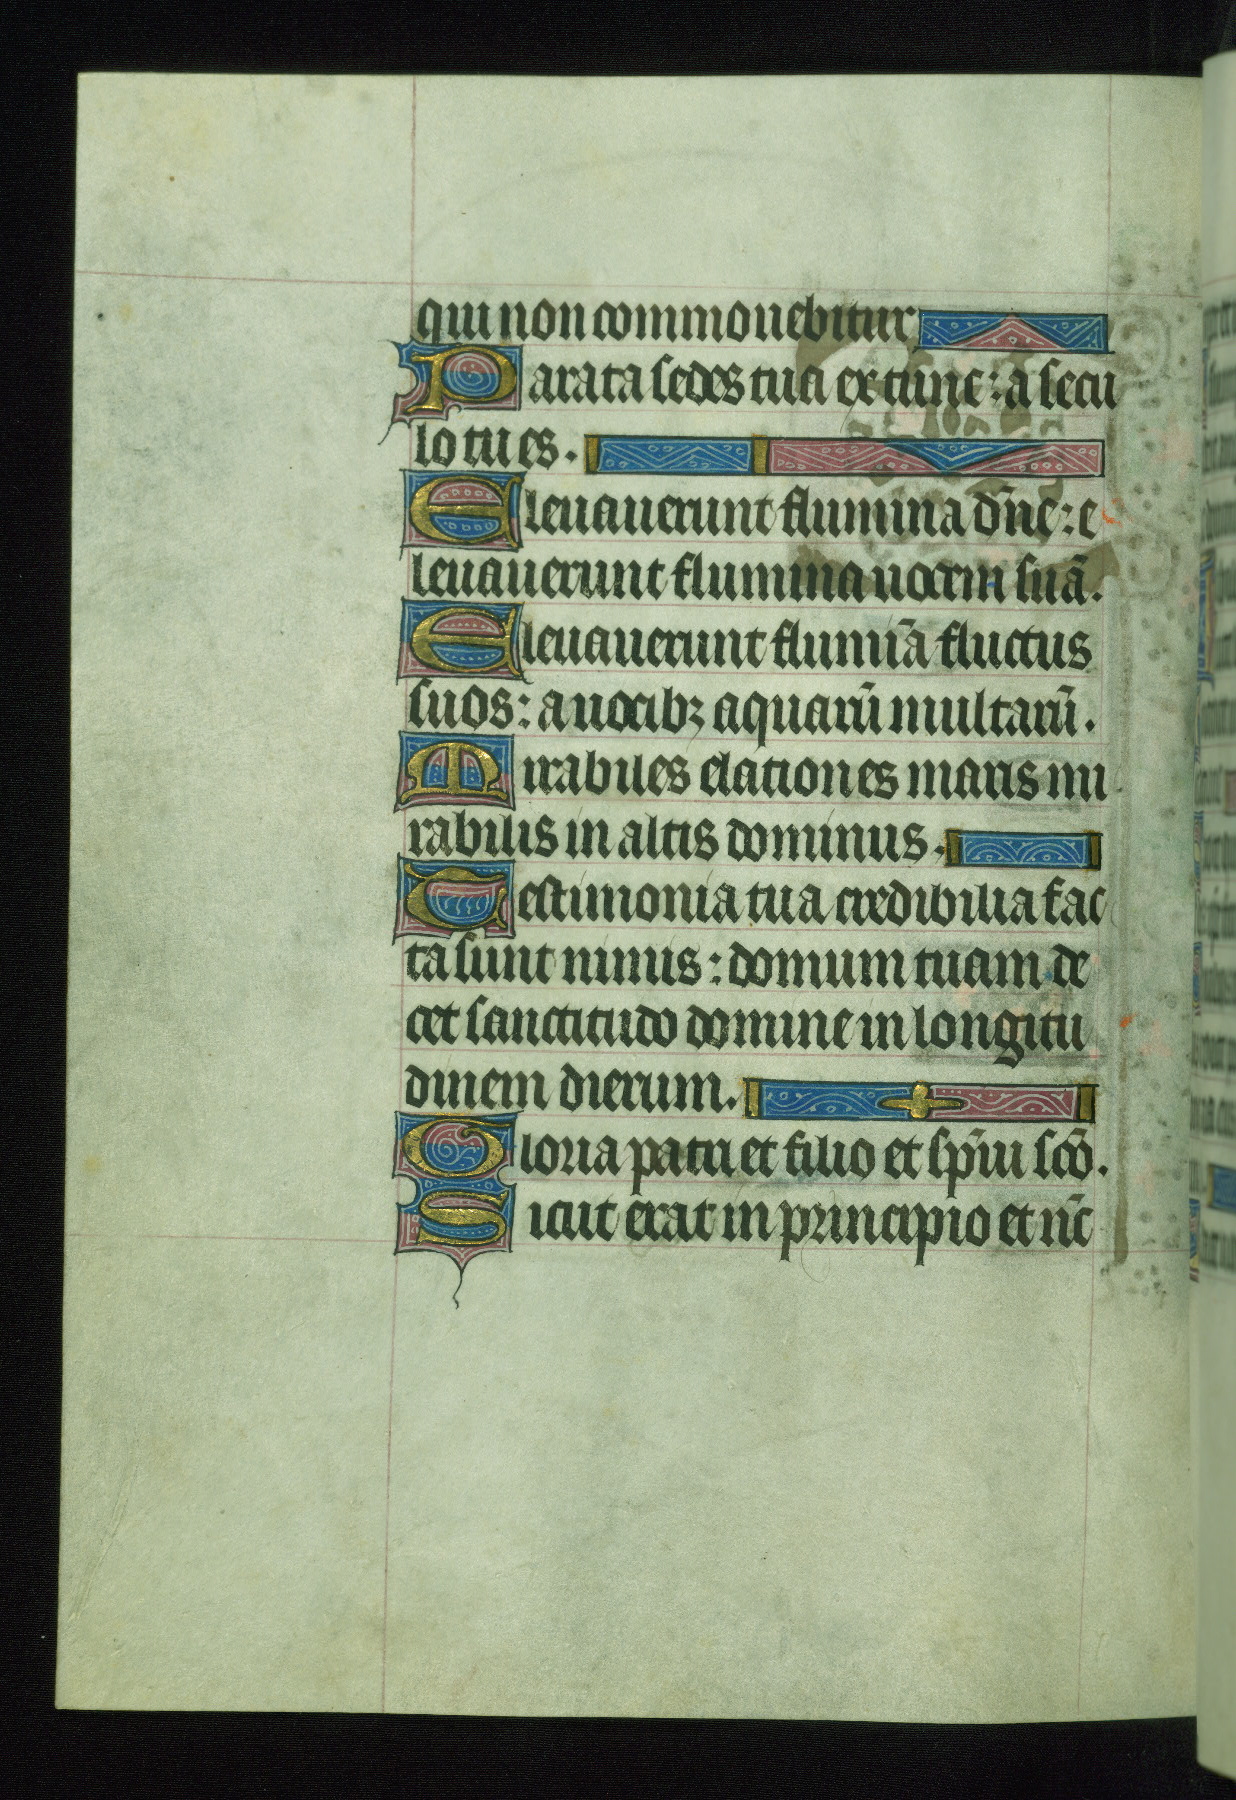 qui non commouebitur
Parata sedes tua ex tunc: a secu
lo tu es.
Eleuauerunt flumina dn̄e: e
leuauerunt flumina uocem suā.
Eleuauerunt flumīa fluctus
suos: a uocibꝫ aquarū multarū.
Mirabiles elationes maris mi
rabilis in altis dominus.
Testimonia tua credibilia fac
ta sunt nimis: domum tuam de
cet sanctitudo domine in longitu
dinem dierum.
Gloria patri et filio et sp̄iui sc̄o.
Sicut erat in principio et nc̄